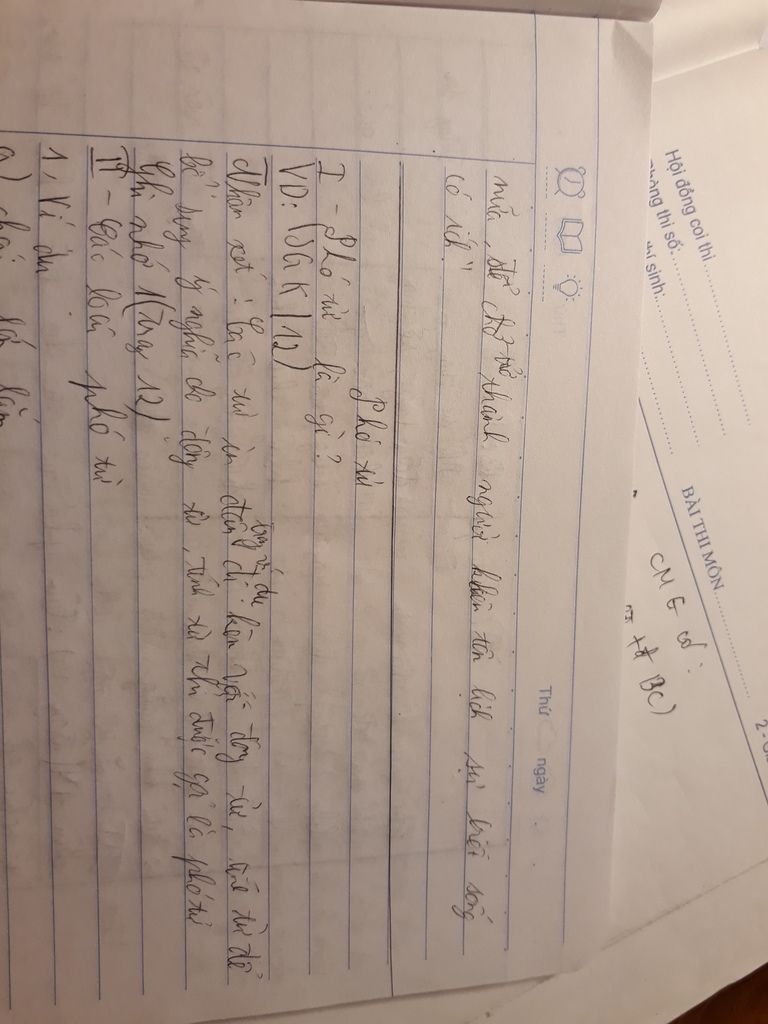 Thứ ngày
nữa, để chở trở thành người khiêm tốn lịch sự biết sống
có ích"
Phó từ
I - Phó từ là gì?
VD: (SGK/12)
Nhận xét: Các từ in đậm trong ví dụ đi kèm với động từ, tính từ để
bổ sung ý nghĩa cho động từ, tính từ thì được gọi là phó từ
Ghi nhớ 1 (Trang 12)
II - Các loại phó từ
1, Ví dụ
a) chói lắm
Hội đồng coi thi
Phòng thi số:
thí sinh:
BÀI THI MÔN
BC)